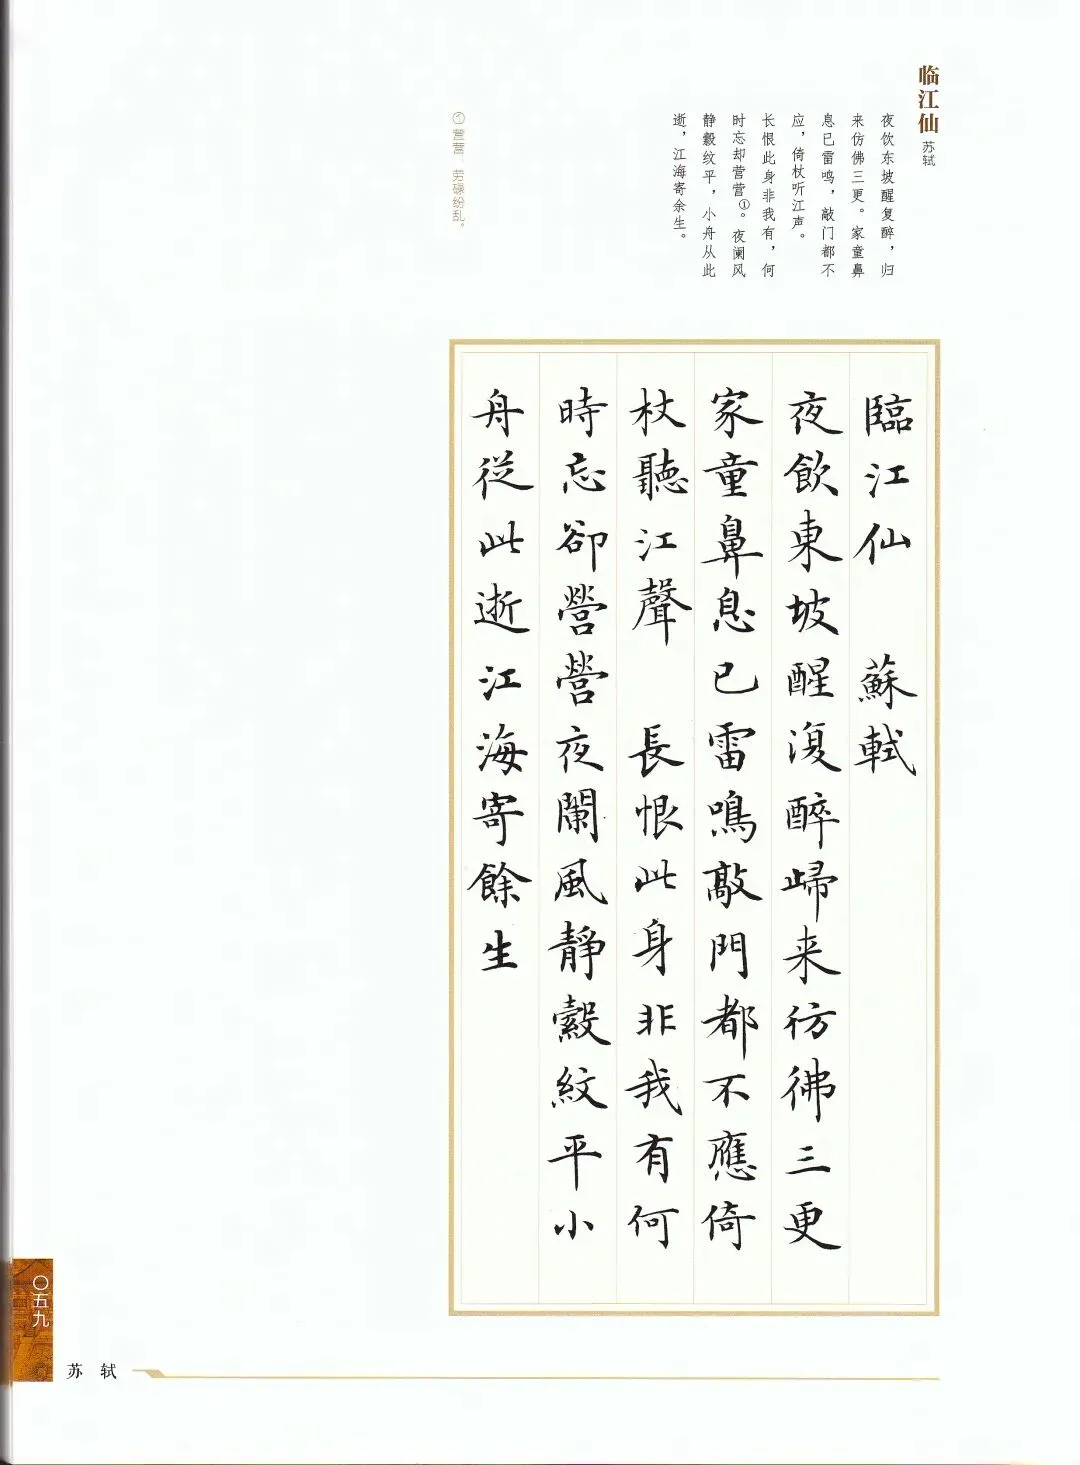 临江仙
苏轼
夜饮东坡醒复醉，归
来仿佛三更。家童鼻
息已雷鸣，敲门都不
应，倚杖听江声。
长恨此身非我有，何
时忘却营营①。夜阑风
静縠纹平，小舟从此
逝，江海寄余生。
①营营 劳碌纷乱。
臨江仙 蘇軾
夜飲東坡醒復醉歸来彷彿三更
家童鼻息已雷鳴敲門都不應倚
杖聽江聲 長恨此身非我有何
時忘卻營營夜闌風靜縠紋平小
舟從此逝江海寄餘生
〇五九
苏 轼